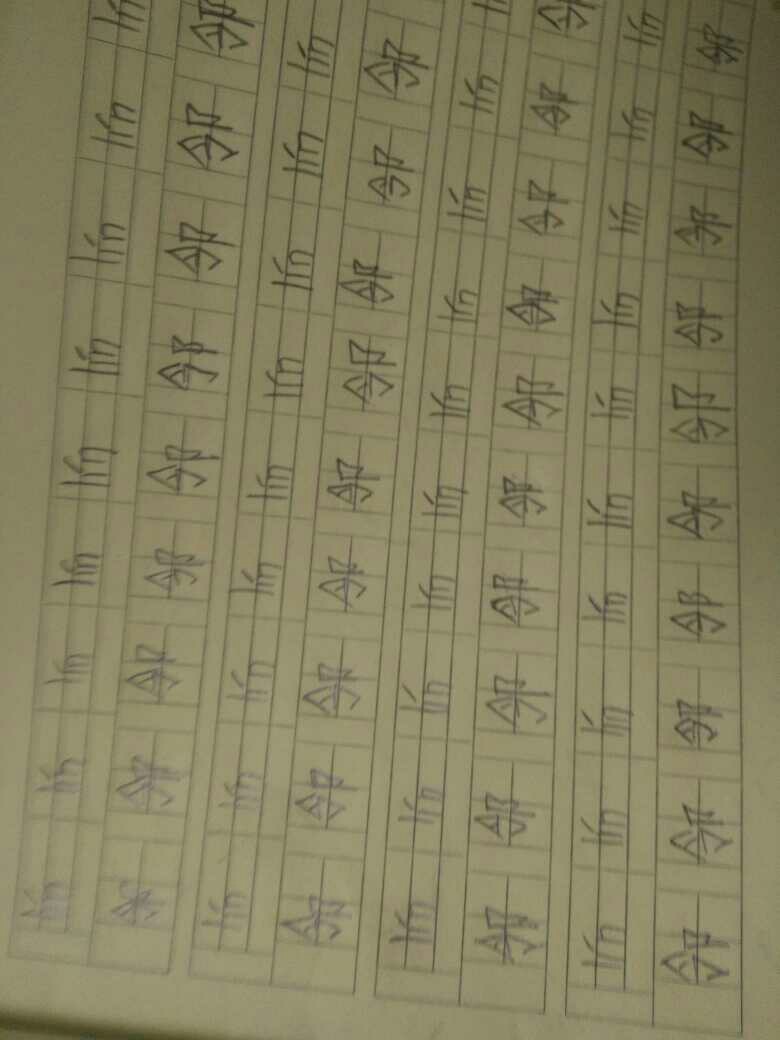 lín lín lín lín lín lín lín lín lín
邻 邻 邻 邻 邻 邻 邻 邻 邻
lín lín lín lín lín lín lín lín lín
邻 邻 邻 邻 邻 邻 邻 邻 邻
lín lín lín lín lín lín lín lín lín
邻 邻 邻 邻 邻 邻 邻 邻 邻 邻
lín lín lín lín lín lín lín lín lín lín
邻 邻 邻 邻 邻 邻 邻 邻 邻 邻